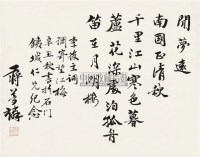 閒夢遠
南國正清秋
千里江山寒色暮
蘆花深處泊孤舟
笛在月明樓
李後主詞
調寄望江梅
辛丑秋書於石門
仁兄紀念